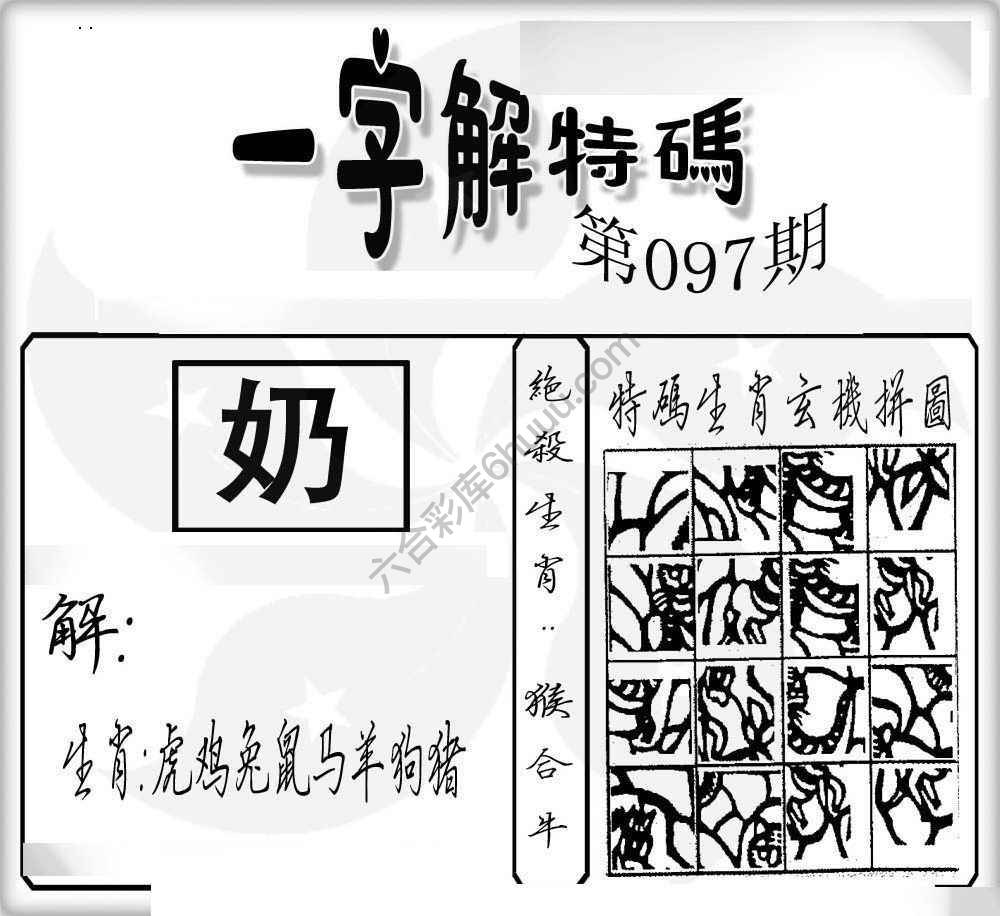 一字解特碼
第097期
奶
解:
生肖:虎鸡兔鼠马羊狗猪
絶殺生肖:猴合牛
特碼生肖玄機拼圖
六合彩库6huuu.com